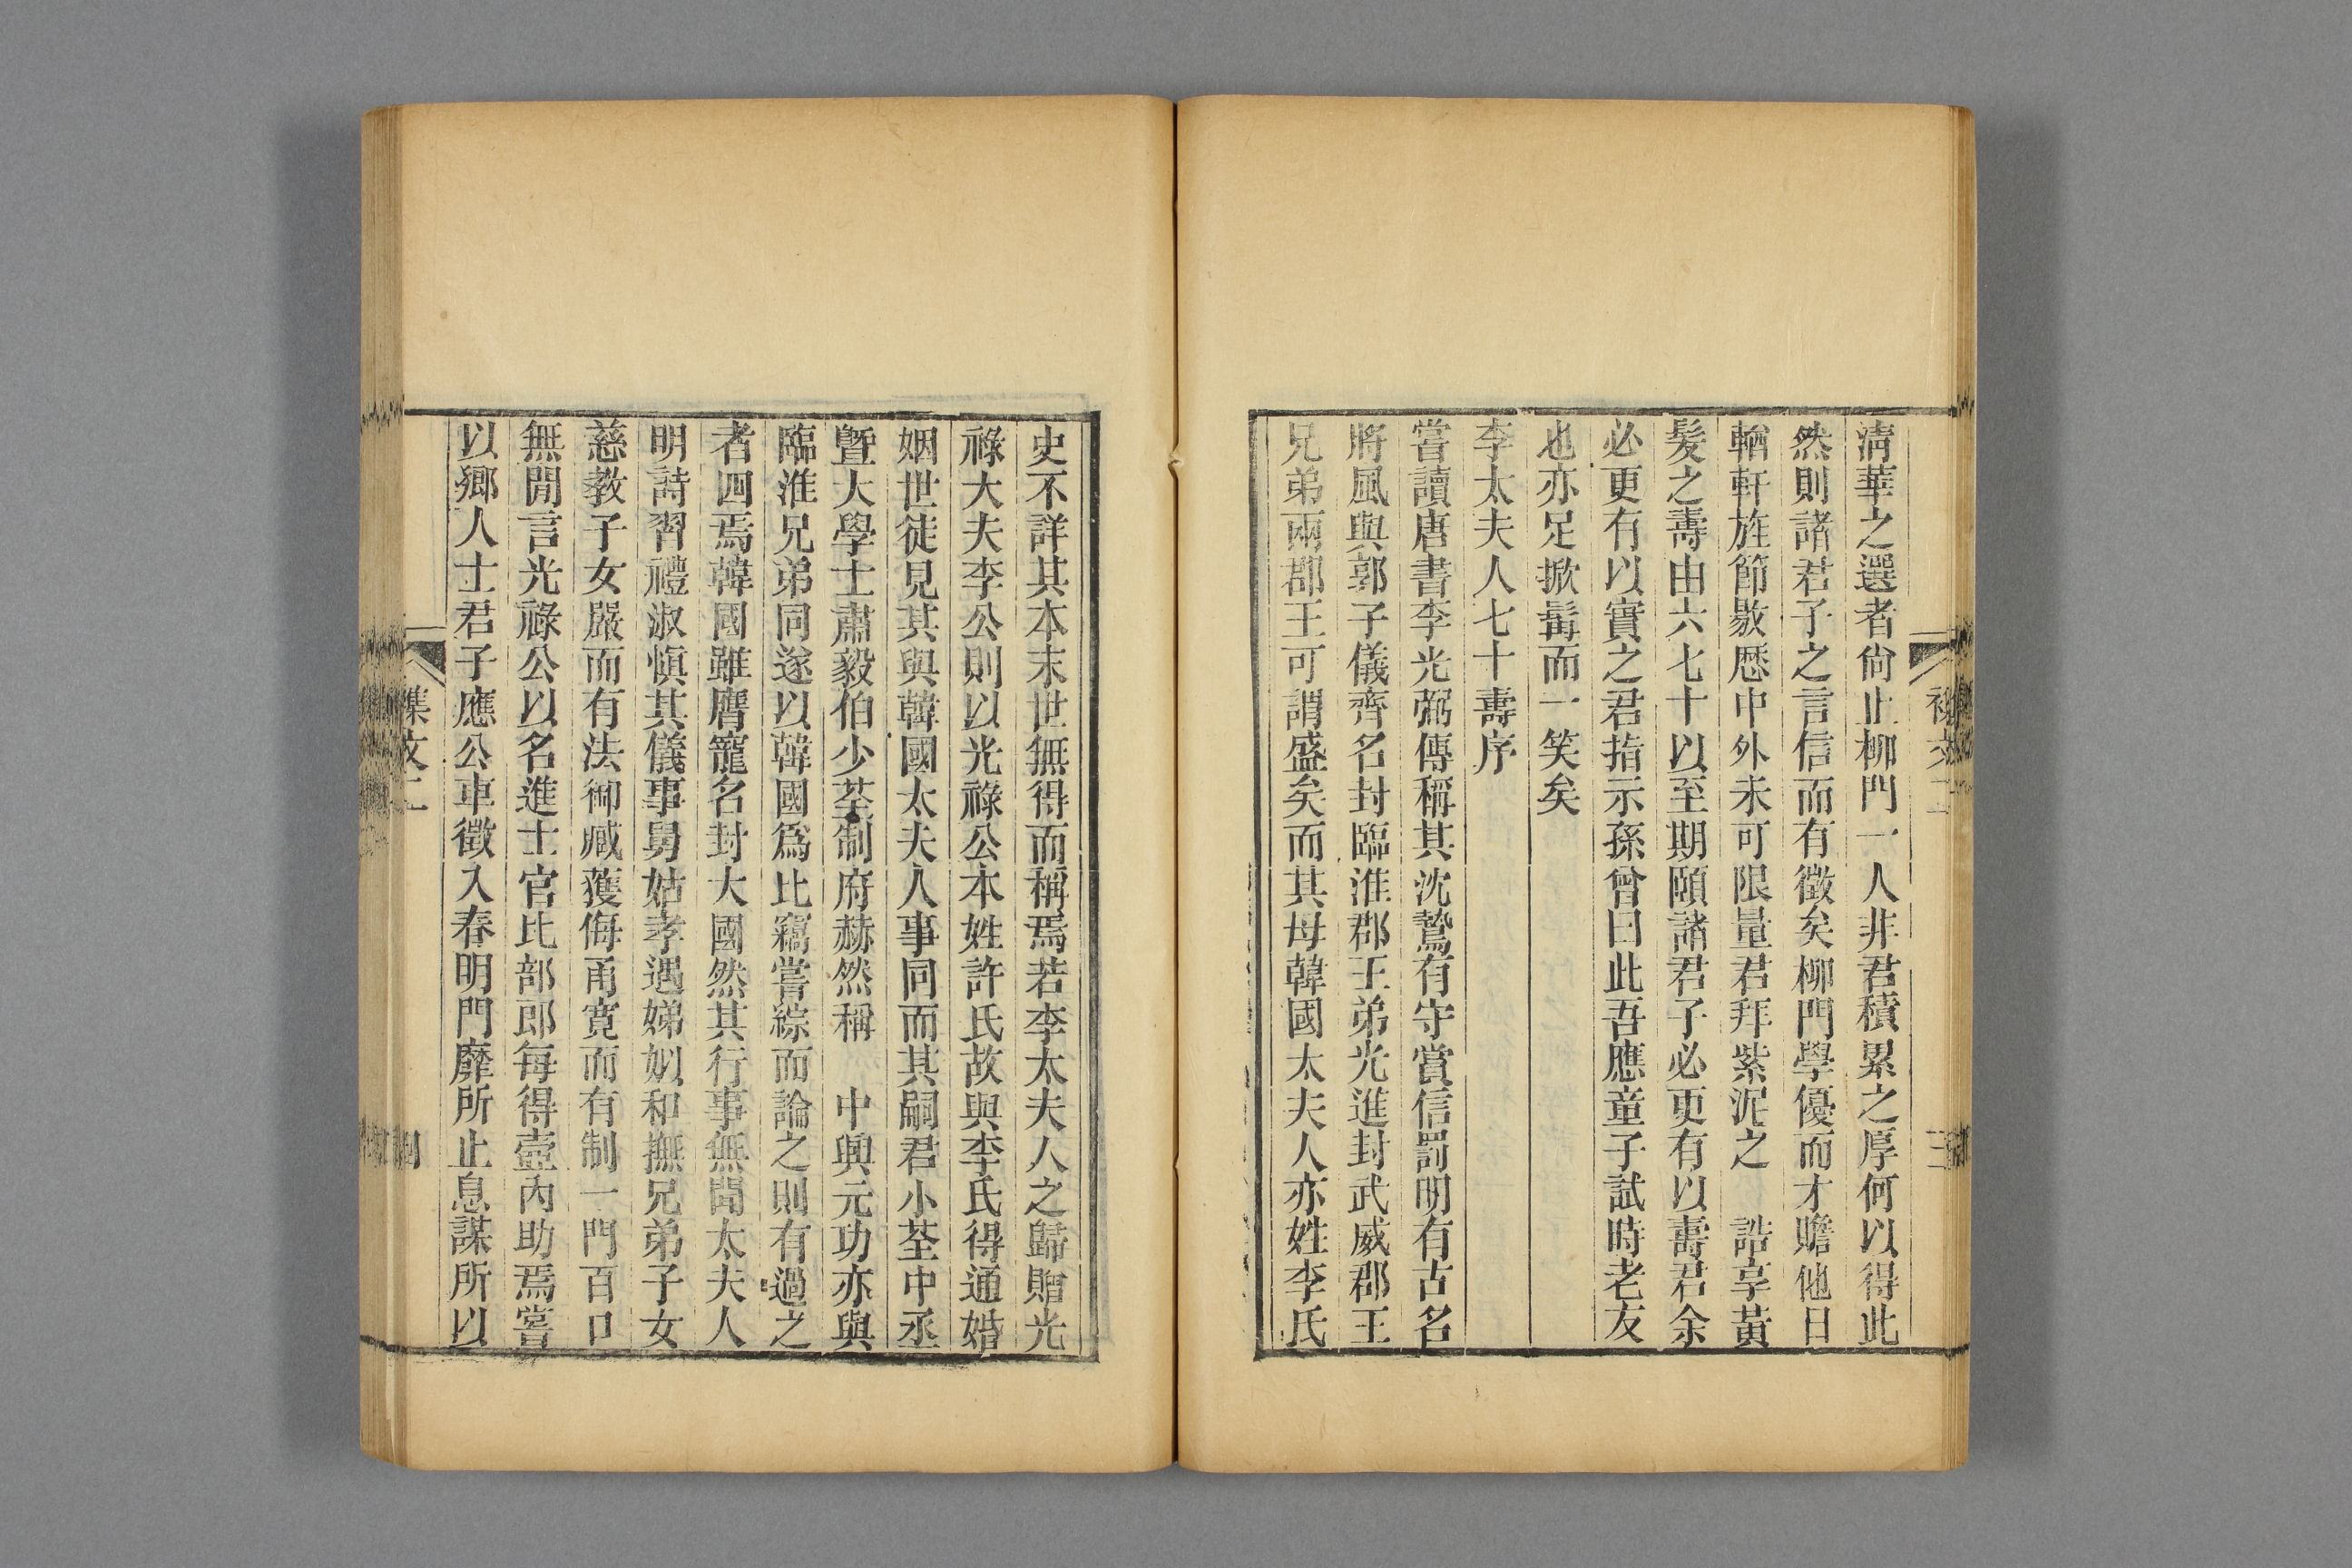 清華之選者尙止柳門一人非君積累之厚何以得此
然則諸君子之言信而有徵矣柳門學優而才贍他日
輶軒旌節敭歷中外未可限量君拜紫泥之　誥享黃
髮之壽由六七十以至期頤諸君子必更有以壽君余
必更有以實之君指示孫曾曰此吾應童子試時老友
也亦足掀髯而一笑矣
李太夫人七十壽序
嘗讀唐書李光弼傳稱其沈鷙有守賞信罰明有古名
將風與郭子儀齊名封臨淮郡王弟光進封武威郡王
兄弟兩郡王可謂盛矣而其母韓國太夫人亦姓李氏
史不詳其本末世無得而稱焉若李太夫人之歸贈光
祿大夫李公則以光祿公本姓許氏故與李氏得通婚
姻世徒見其與韓國太夫人事同而其嗣君小荃中丞
曁大學士肅毅伯少荃制府赫然稱　中興元功亦與
臨淮兄弟同遂以韓國爲比竊嘗綜而論之則有過之
者四焉韓國雖膺寵名封大國然其行事無聞太夫人
明詩習禮淑愼其儀事舅姑孝遇娣姒和撫兄弟子女
慈教子女嚴而有法御臧獲侮甬寬而有制一門百口
無閒言光祿公以名進士官比部郎每得壼內助焉嘗
以鄉人士君子應公車徵入春明門靡所止息謀所以